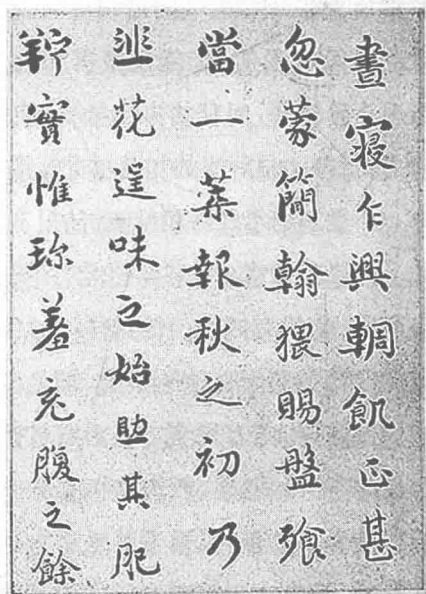 晝寢乍興輖飢正甚
忽蒙簡翰猥賜盤飱
當一葉報秋之初乃
韭花逞味之始助其肥
羜實惟珍羞充腹之餘